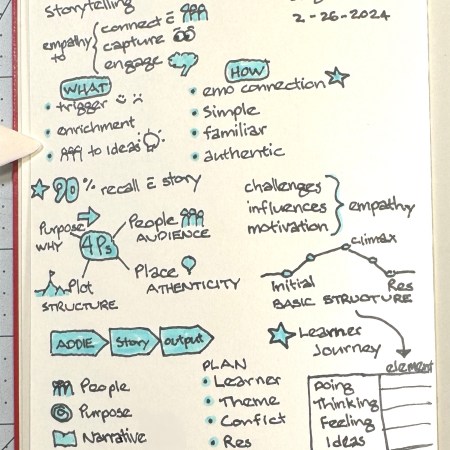 storytelling
2-26-2024
empathy to
connect c̄
capture
engage
WHAT
• trigger
• enrichment
• to Ideas
HOW
• emo connection
• Simple
• familiar
• authentic
90% recall c̄ story
challenges
influences
motivation
empathy
4Ps
Purpose
WHY
People
AUDIENCE
Place
ATHENTICITY
Plot
STRUCTURE
climax
Initial
Res
BASIC STRUCTURE
ADDIE
Story
output
Learner
Journey
element
Doing
Thinking
Feeling
Ideas
People
Purpose
Narrative
PLAN
• Learner
• Theme
• Conflict
• Res